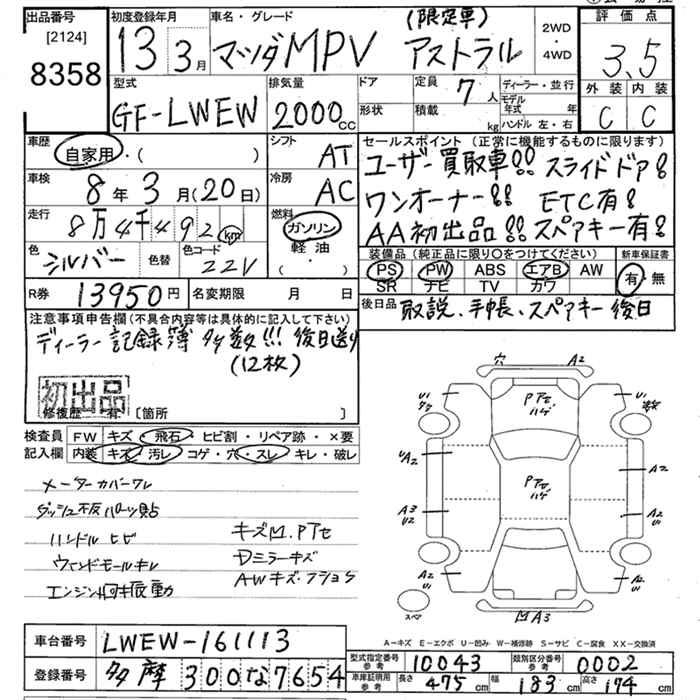 出品番号 初度登録年月 車名・グレード (限定車) 2WD ・ 4WD 評価点
[2124] 8358 13 3月 マツダMPV アストラル 3.5
型式 排気量 ドア 定員 7人 ディーラー・並行 外装 内装
GF-LWEW 2000cc 形状 積載 kg モデル年式 年 ハンドル 左・右 C C
車歴 自家用・( ) シフト AT セールスポイント (正常に機能するものに限ります)
ユーザー買取車!! スライドドア!
車検 8年3月(20日) 冷房 AC ワンオーナー!! ETC有!
走行 8万4千492km 燃料 ガソリン・軽油・( ) AA初出品!! スペアキー有!
色 シルバー 色替 色コード 22V 装備品 (純正品に限り○をつけてください) 新車保証書
PS PW ABS エアB AW 有・無
SR ナビ TV カワ
R券 13950円 名変期限 月 日 後日品 取説、手帳、スペアキー後日
注意事項申告欄(不具合内容等は具体的に記入して下さい)
ディーラー記録簿多数!!!後日送り
(12枚)
初出品
修復歴 有:[箇所 ]
検査員 FW キズ・飛石・ヒビ割・リペア跡・×要
記入欄 内装 キズ・汚レ・コゲ・穴・スレ・キレ・破レ
メーターカバーワレ
ダッシュ板ハガレ貼
ハンドルヒビ キズM.Pアセ
ウィンドモールキレ Dミラーキズ
エンジン回振動 AWキズ・フショク
穴 A2
U1 Pアセ ハゲ U1
UA2 Pアセ ハゲ A2
A3 U2 A2 U1
A2 U1 A2 U1
スペア MA3
A-キズ E-エクボ U-凹み W-補修跡 S-サビ C-腐食 XX-交換済
車台番号 LWEW-161113 型式指定番号 参考 10043 類別区分番号 参考 0002
登録番号 多摩 300 な7654 車庫証明用 参考 長さ 475cm 幅 183cm 高さ 174cm